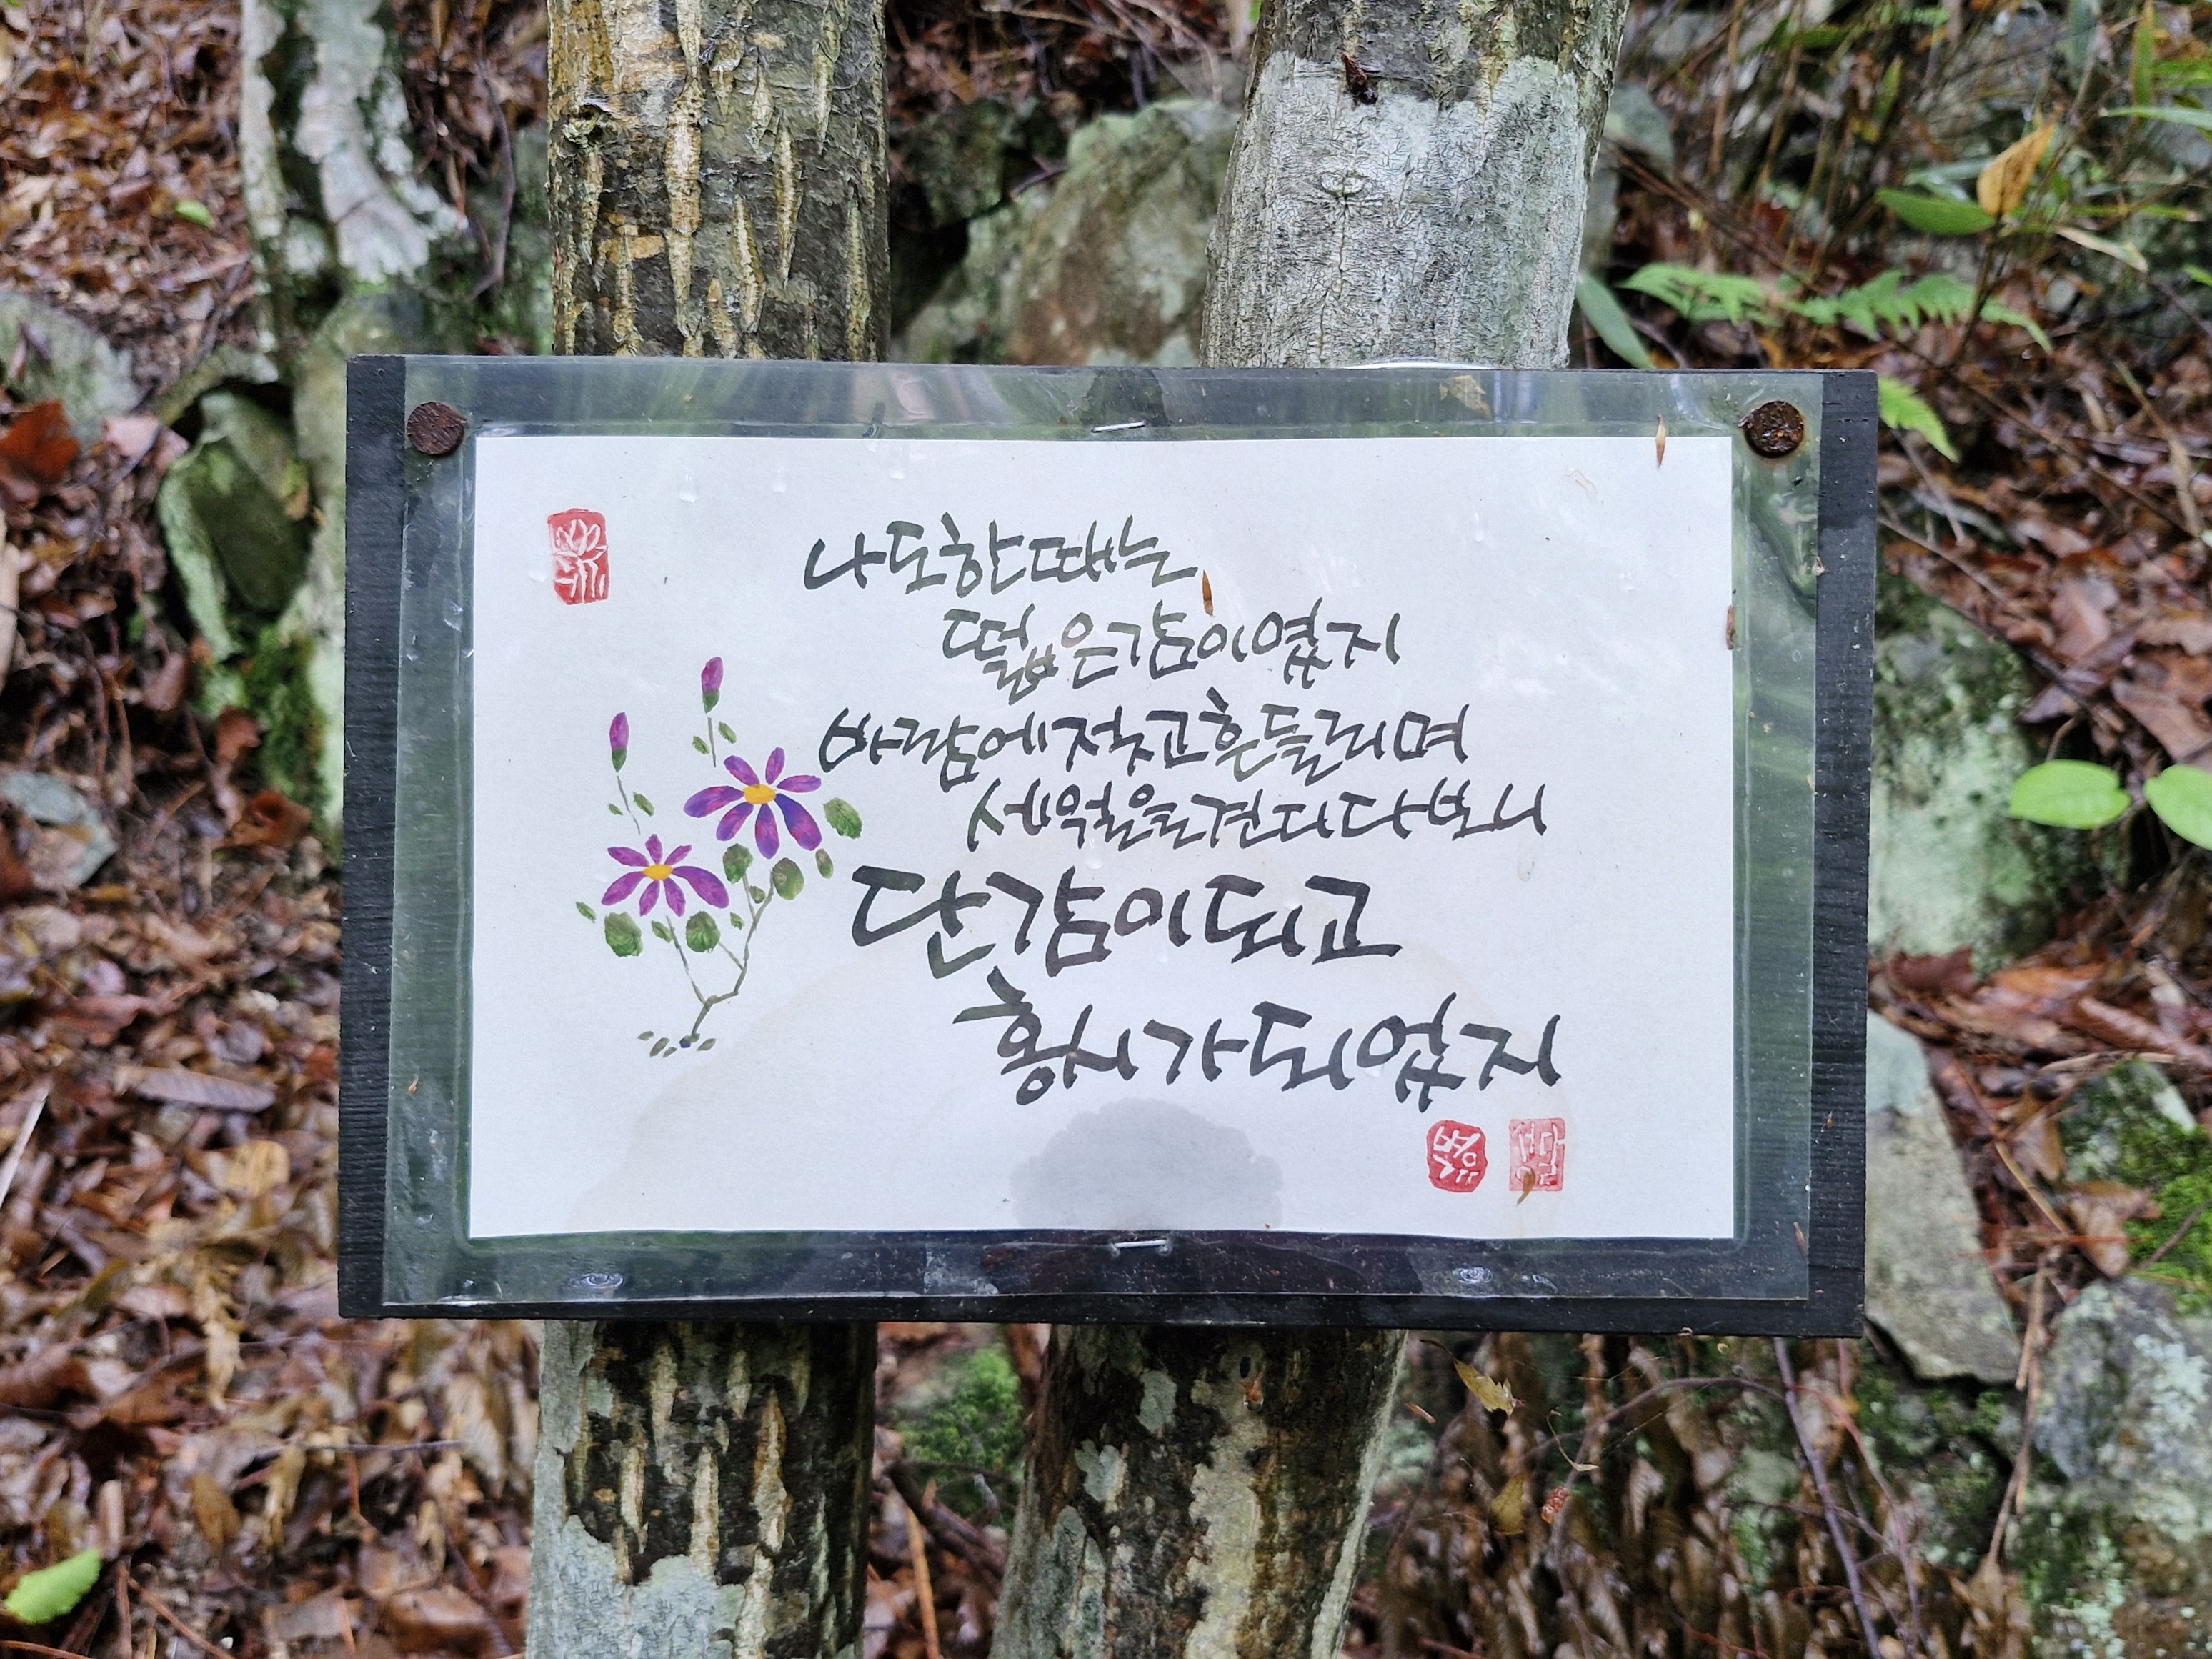 나도한때는
떫은감이였지
바람에젖고흔들리며
세월을견디다보니
단감이되고
홍시가되었지